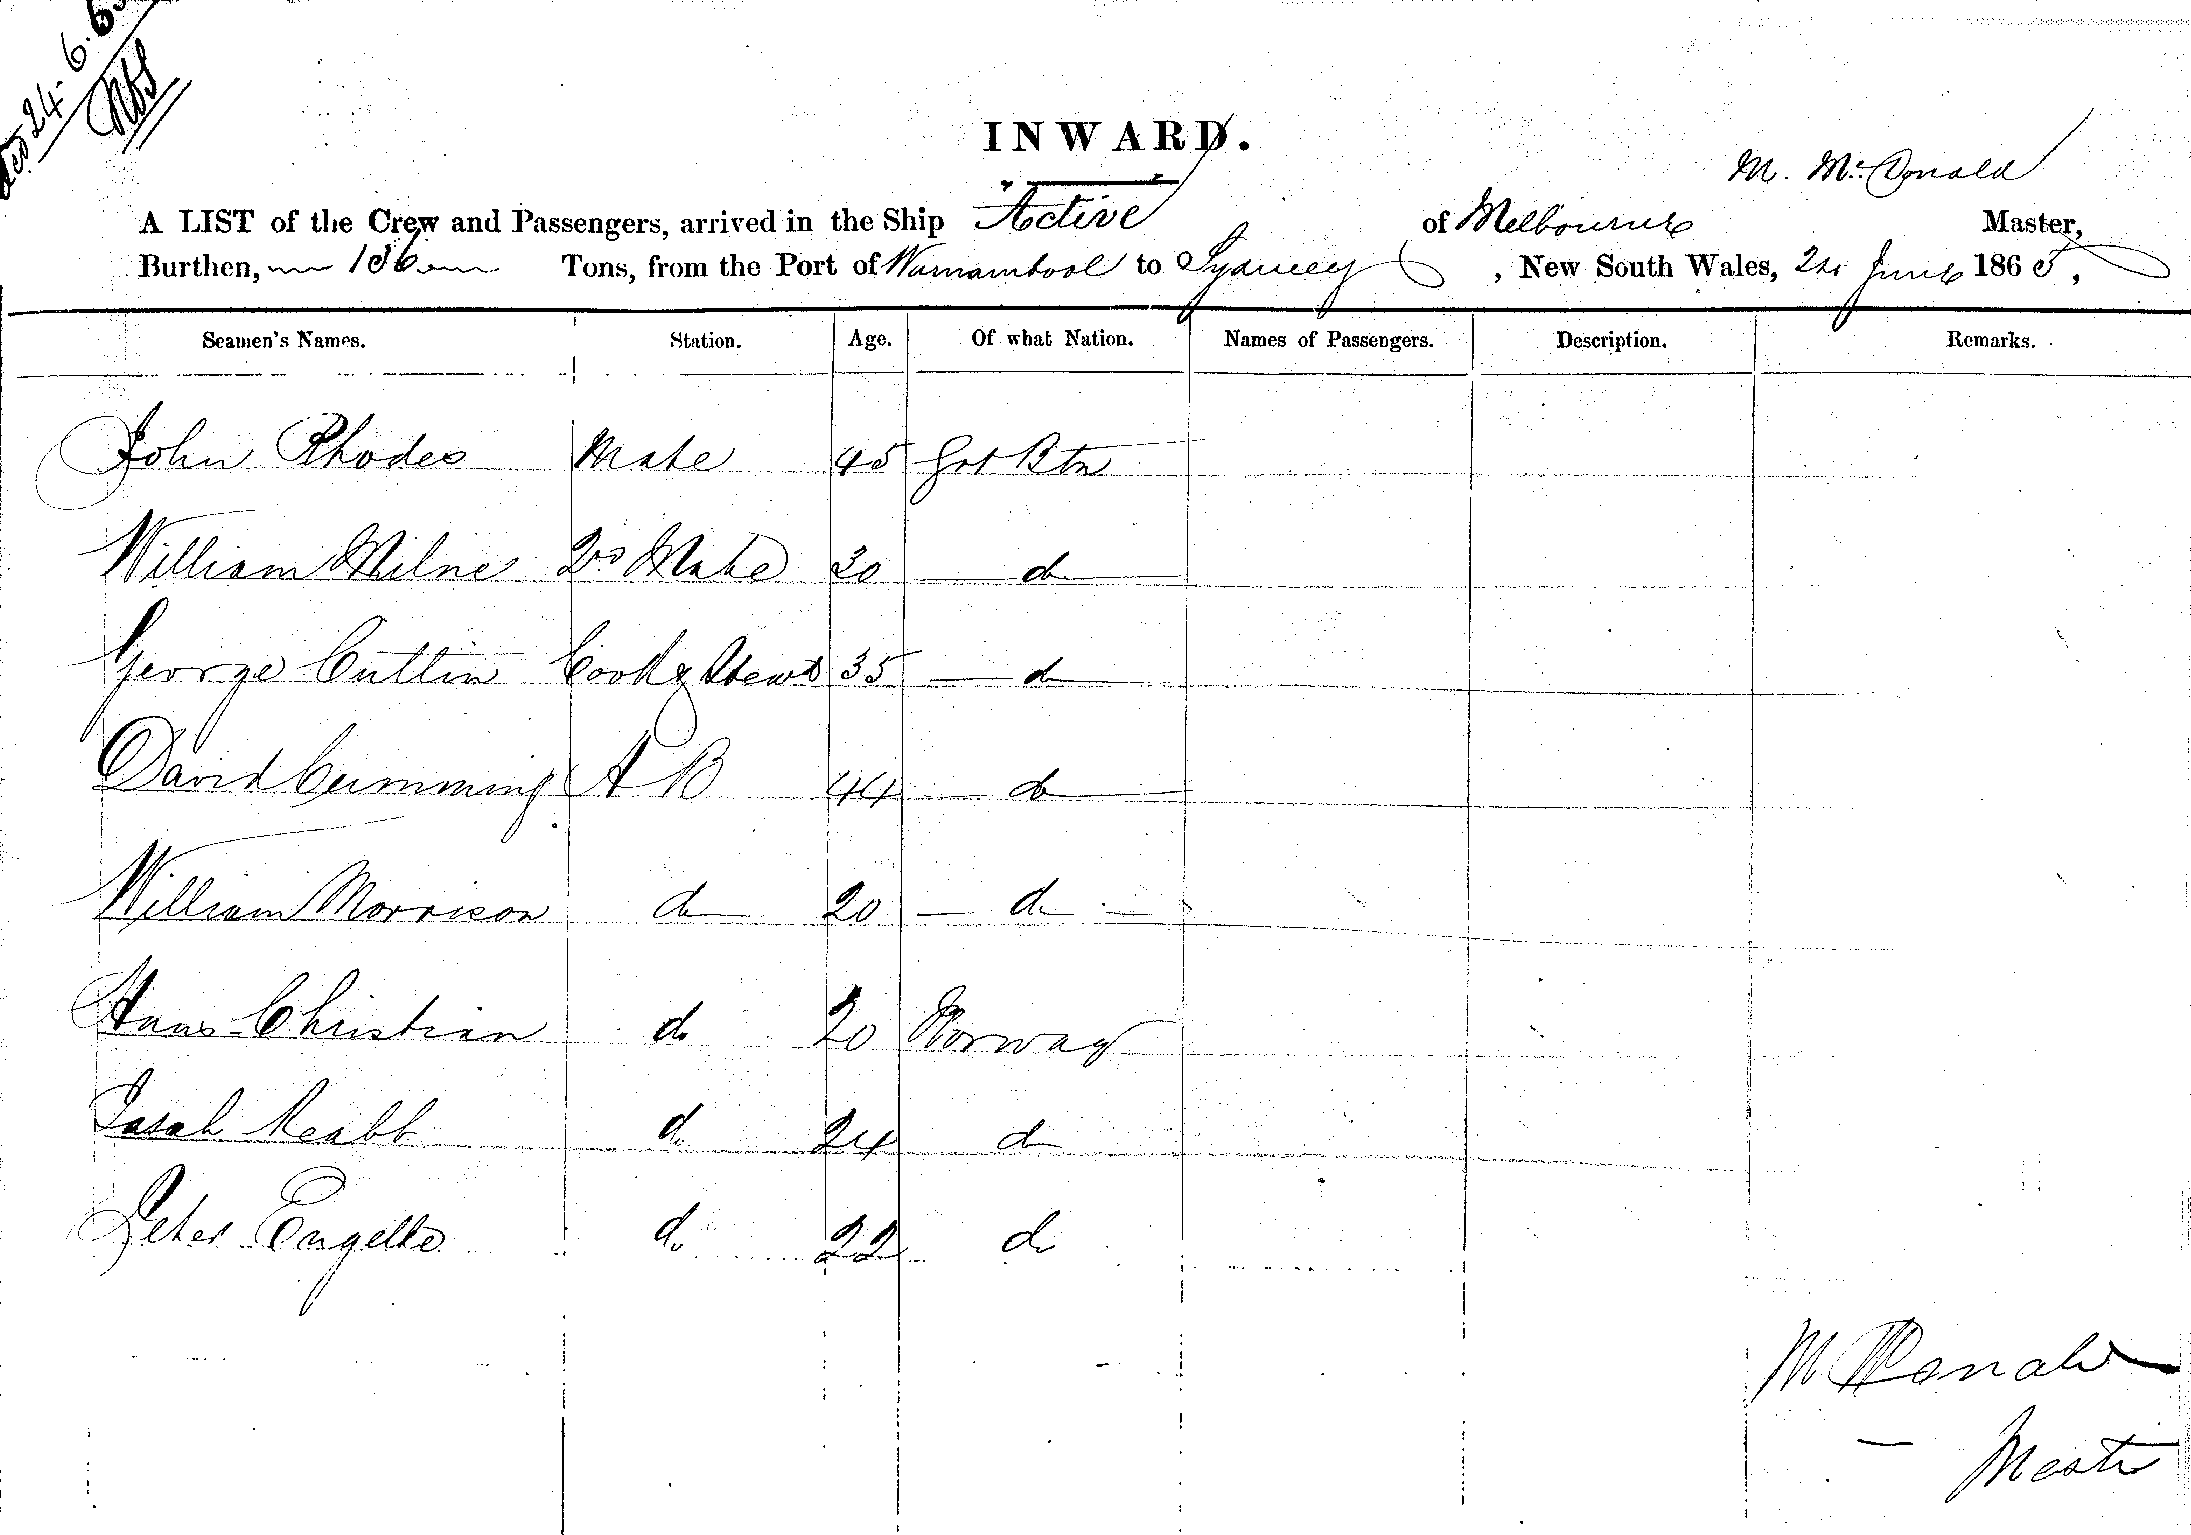 24.6.65
INWARD.
M. McDonald
A LIST of the Crew and Passengers, arrived in the Ship "Active" of Melbourne Master,
Burthen, 136 Tons, from the Port of Warnambool to Sydney, New South Wales, June 1865,
Seamen's Names. Station. Age. Of what Nation. Names of Passengers. Description. Remarks.
John Rhodes Mate 45 Grt Btn
William Milne 2nd Mate 30 do
George Cuttin Cook & Stewd 35 do
David Cumming A B 44 do
William Morrison do 20 do
Hans Christian do 20 Norway
do 24 do
Peter do 22 do
M McDonald
Master